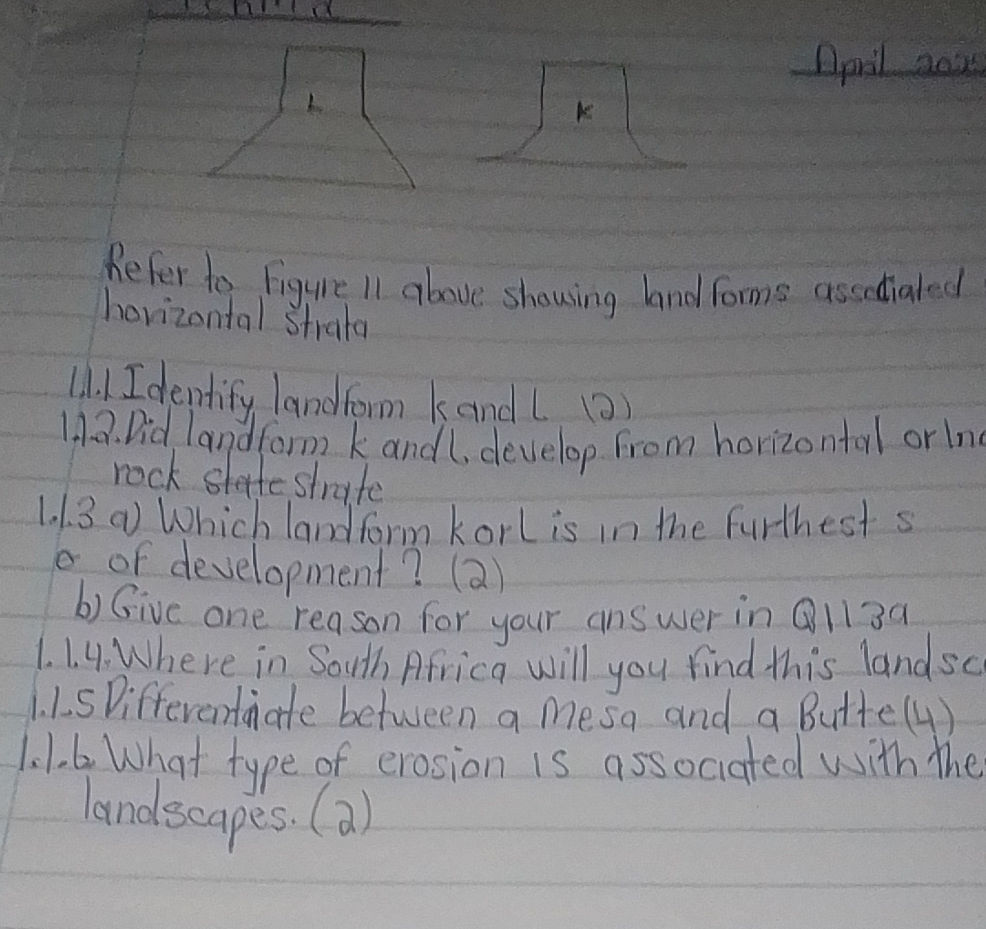 April 202
L
K
Refer to Figure 11 above showing landforms associated
horizontal strata
1.1.1 Identify landform K and L (2)
1.1.2. Did landform K and L develop from horizontal or Inc
rock state strate
1.1.3 a) Which landform K or L is in the furthest s
e of development? (2)
b) Give one reason for your answer in Q113a
1.1.4. Where in South Africa will you find this landsc
1.1.5 Differentiate between a Mesa and a Butte (4)
1.1.6 What type of erosion is associated with the
landscapes. (2)